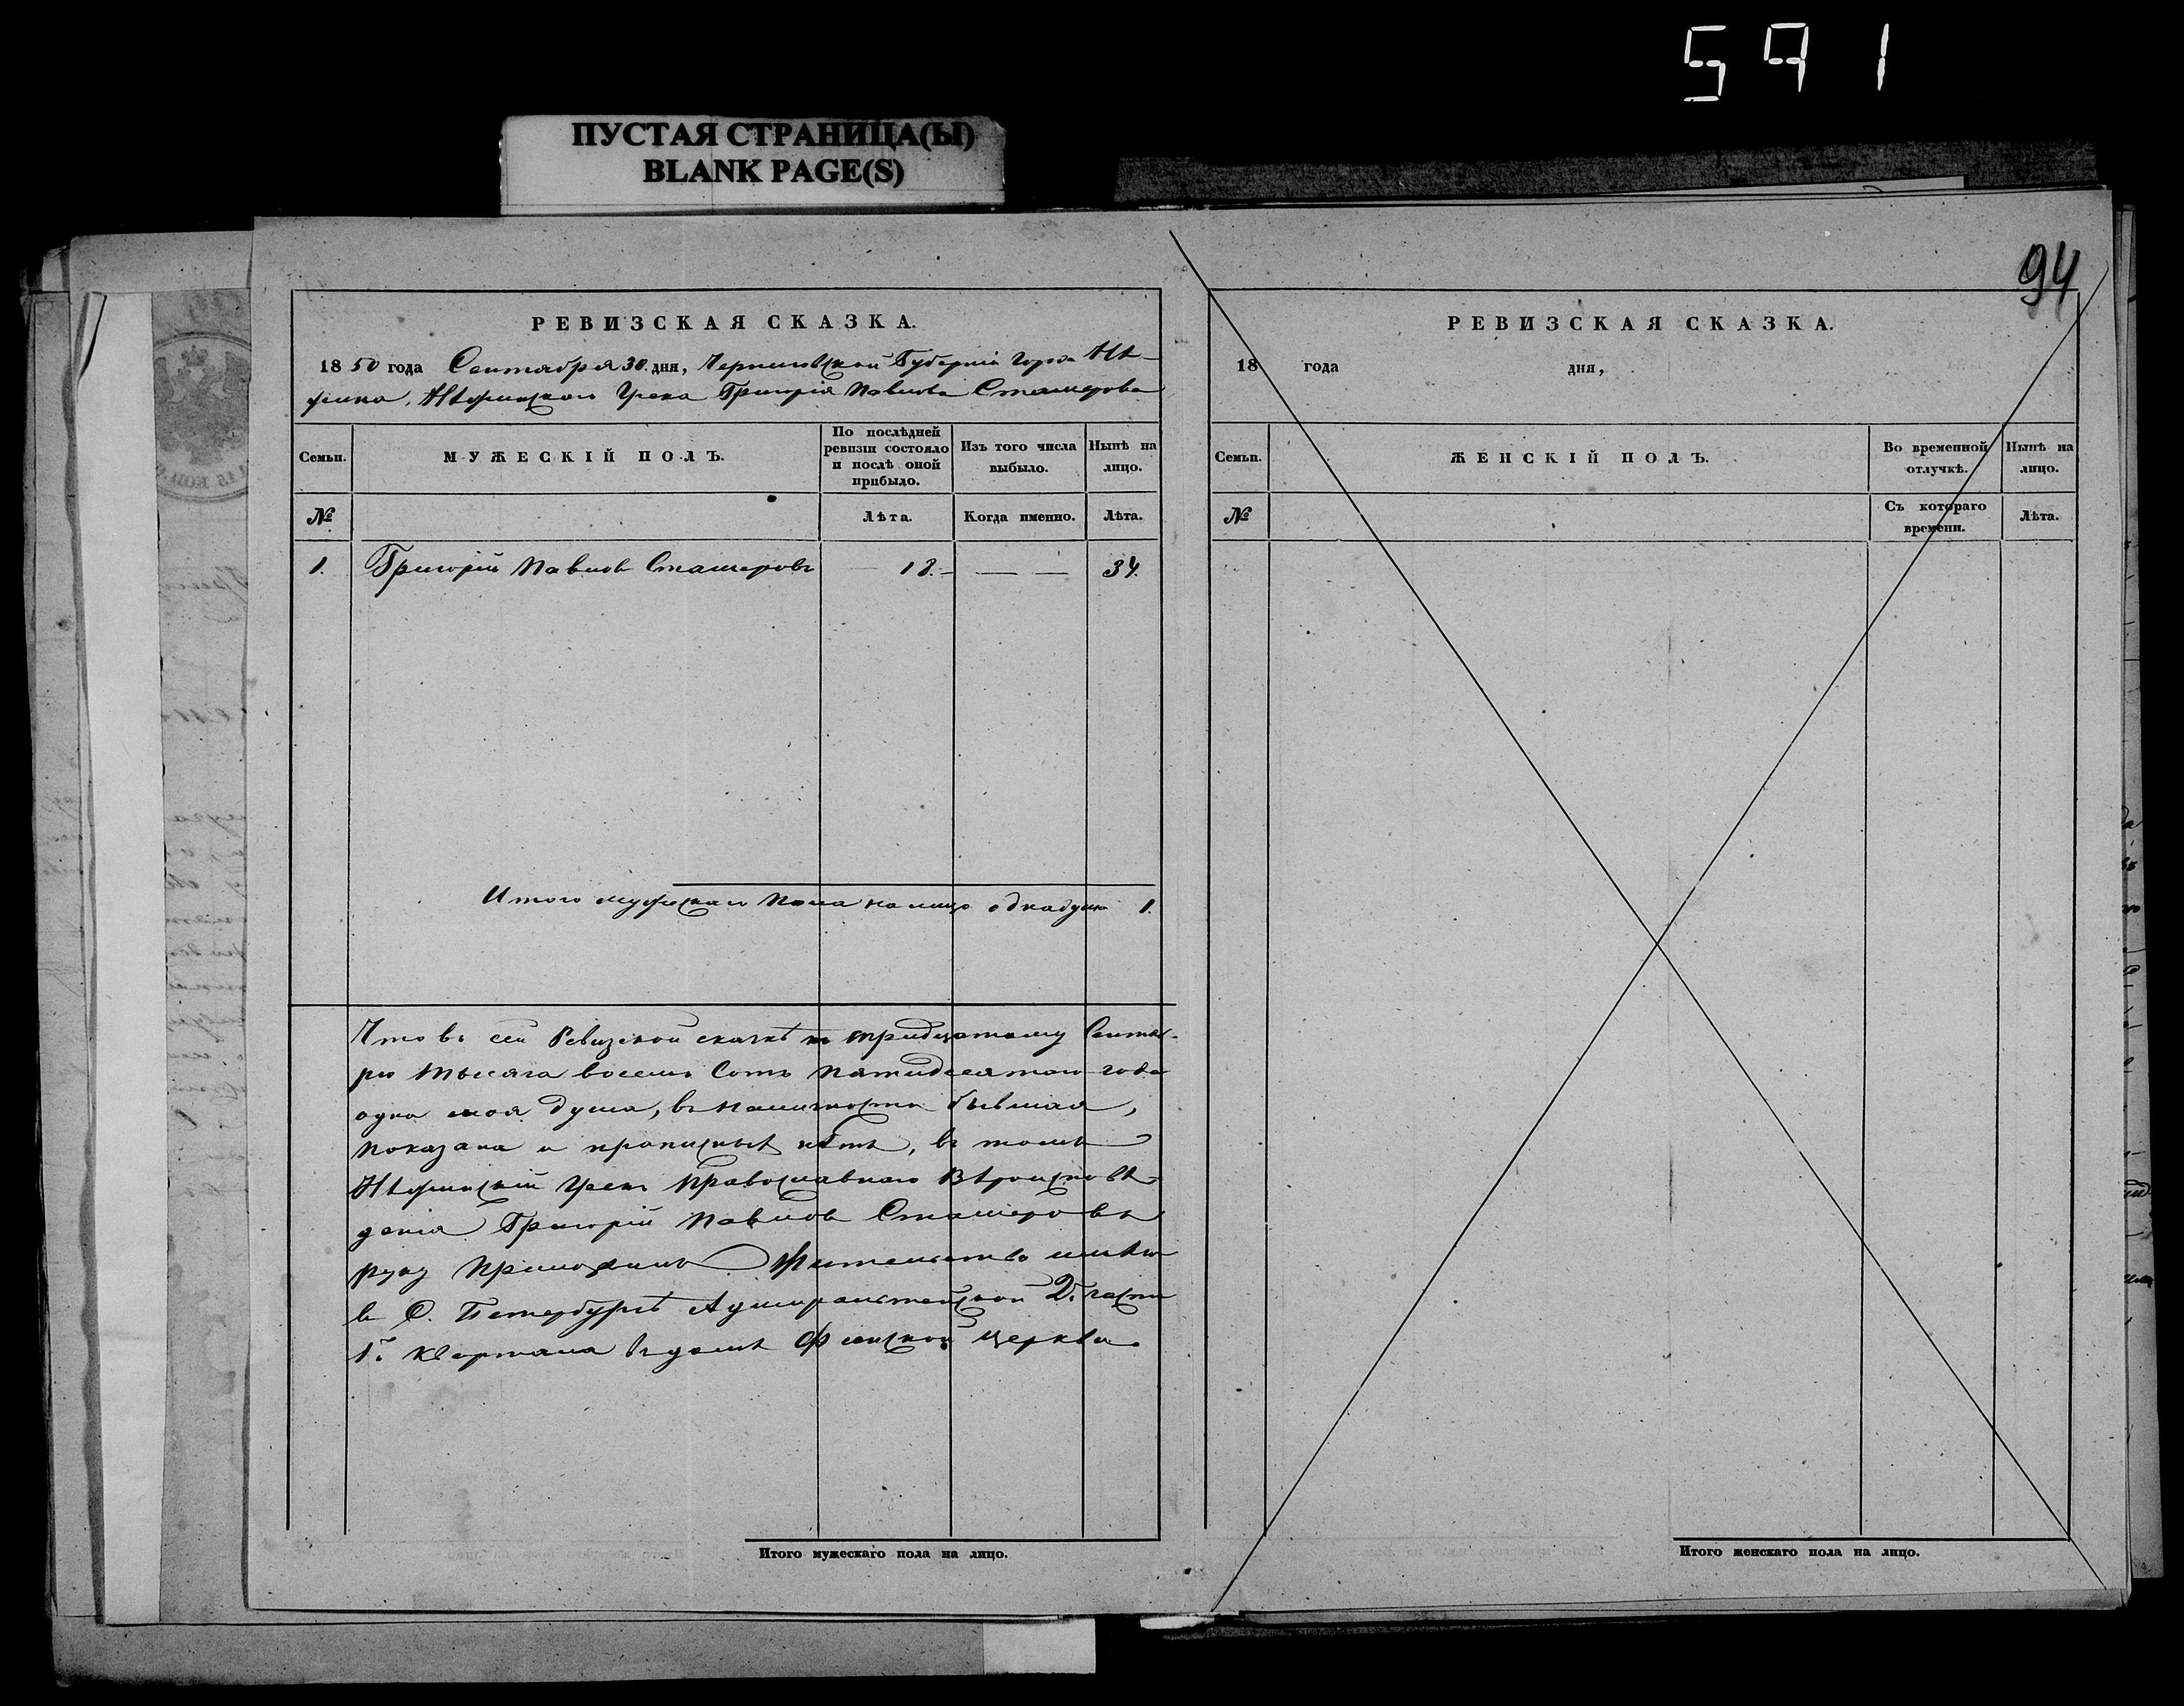 591
ПУСТАЯ СТРАНИЦА(Ы)
BLANK PAGE(S)
94
РЕВИЗСКАЯ СКАЗКА.
1850 года Сентября 30. дня, Черниговской Губерніи города Нѣ-
жина, Нѣжинскаго Грека Григорія Павлова Сташерова
Семьи.
МУЖЕСКІЙ ПОЛЪ.
По послѣдней ревизіи состояло и послѣ оной прибыло.
Изъ того числа выбыло.
Нынѣ на лицо.
№
Лѣта.
Когда именно.
Лѣта.
1. Григорій Павлов Сташеровъ — 18. — — — 34.
Итого мужескаго пола на лицо одна душа 1.
Что въ сей Ревизской сказкѣ по тридцатому Сентяб-
ря тысяча восемь сотъ пятидесятаго года
одна моя душа, въ наличности бывшая,
показана и прописныхъ нѣтъ, въ томъ
Нѣжинскій Грекъ православнаго Вѣроисповѣ-
данія Григорій Павлов Сташеровъ
руку приложилъ. Жительство имѣю
в С. Петербургѣ Адмиралтейской 2й. части
1го. квартала въ домѣ Финской церкви.
Итого мужескаго пола на лицо.
РЕВИЗСКАЯ СКАЗКА.
18 года дня,
Семьи.
ЖЕНСКІЙ ПОЛЪ.
Во временной отлучкѣ.
Нынѣ на лицо.
№
Съ котораго времени.
Лѣта.
Итого женскаго пола на лицо.